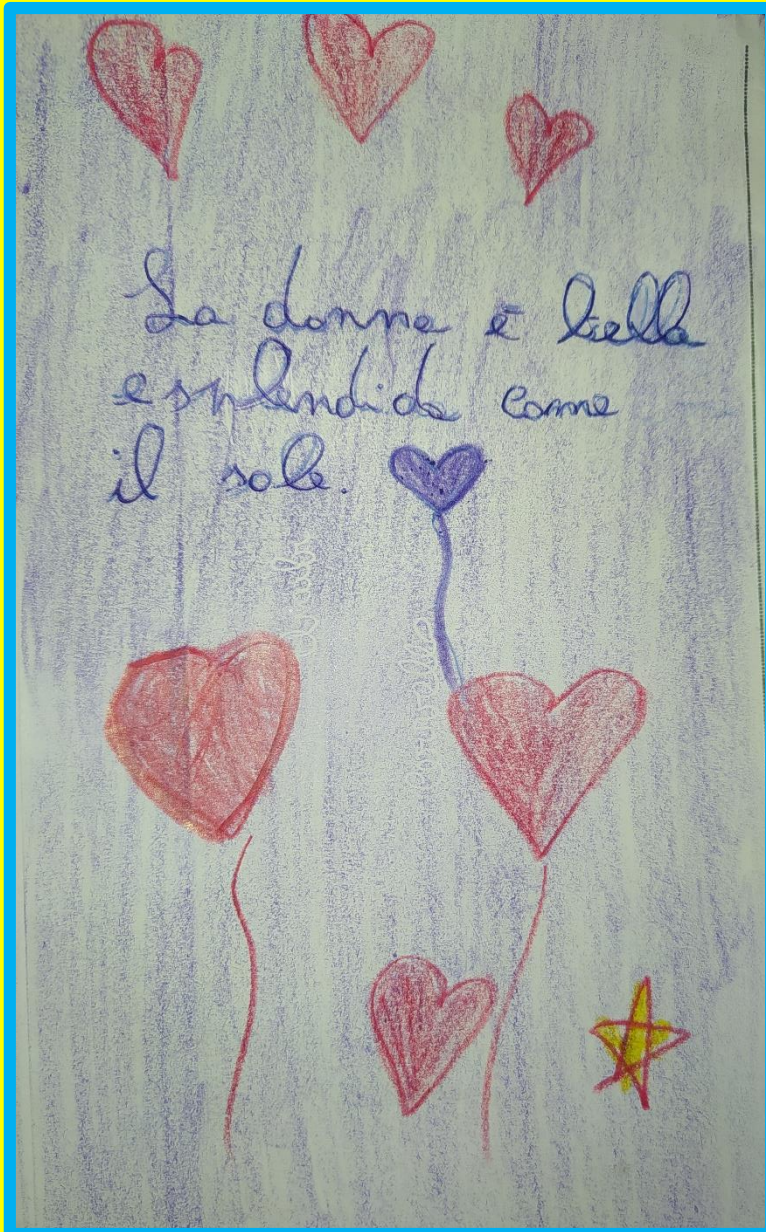 La donna è bella
e splendida come
il sole.